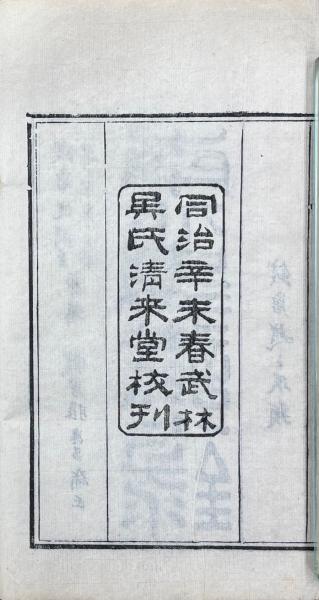 同治辛未春武林
吳氏清來堂校刊